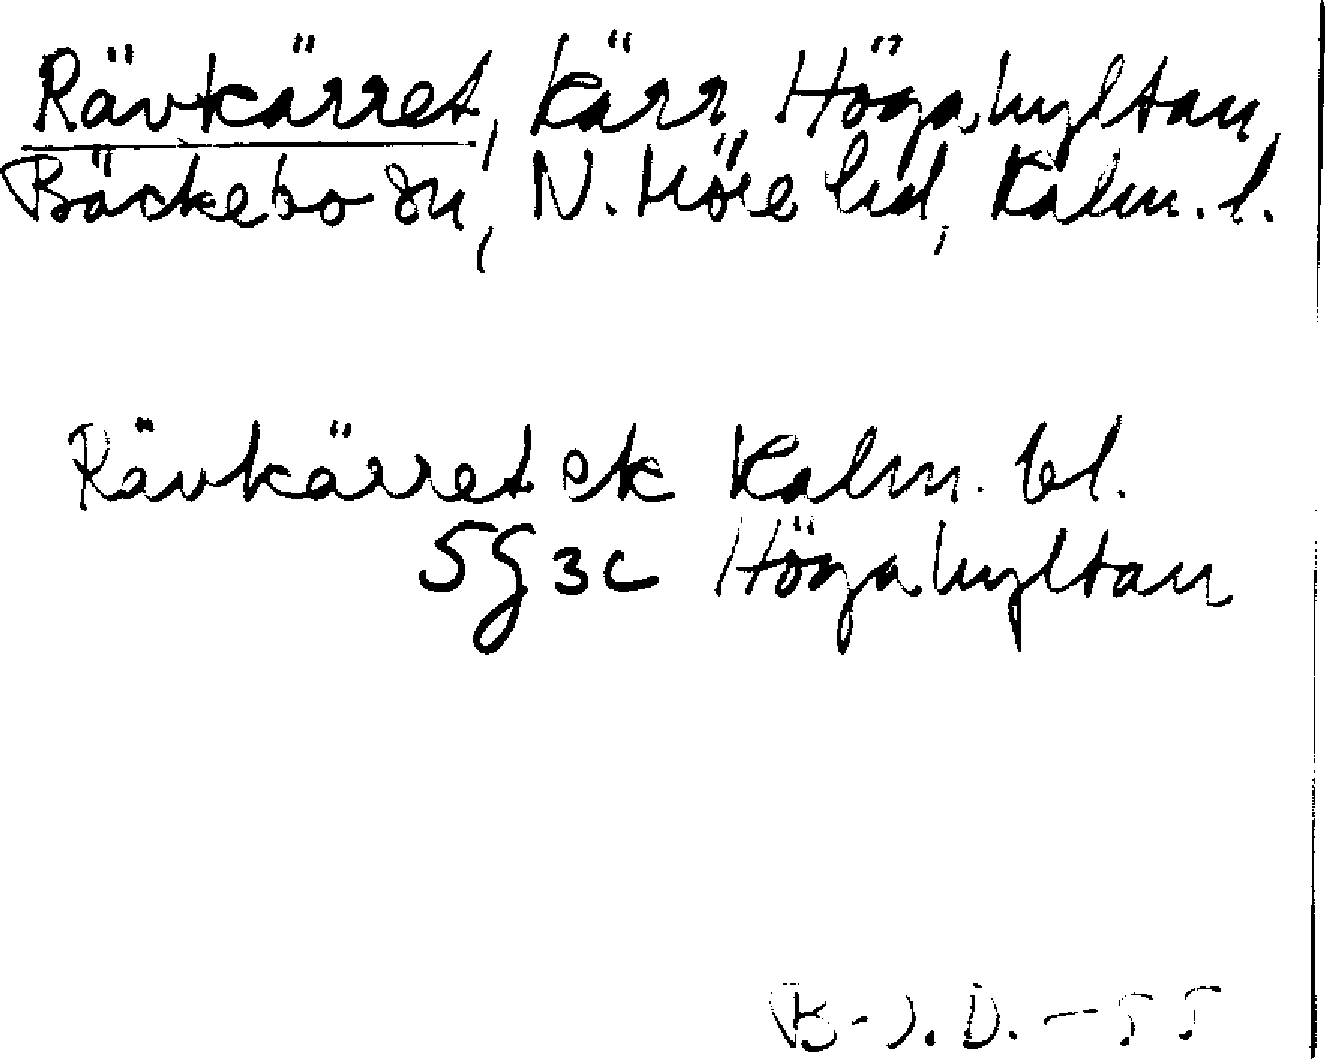 Rävkärret, kärr, Högahyltan,
Bäckebo sn, N. Möre hd, Kalm. l.
Rävkärret ek Kalm. bl.
5G3c Högahyltan
B-J. D. - 55